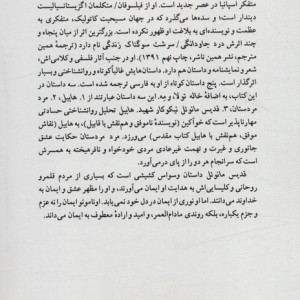 متفکر اسپانیا در عصر جدید است. او از فیلسوفان / متکلمان اگزیستانسیالیست
دیندار است؛ و سده‌ها می‌گذرد که در جهان مسیحیت کاتولیک، متفکری به
عظمت و نویسنده‌ای به بلاغت او ظهور نکرده است. بزرگترین اثر از میان پنجاه و
چند اثرش درد جاودانگی / سرشت سوگناک زندگی نام دارد (ترجمهٔ همین
مترجم، نشر همین ناشر، چاپ نهم ۱۳۹۱). او در جنب آثار فلسفی و کلامی‌اش،
شعر و نمایشنامه و داستان هم دارد. داستان‌هایش غالباً کوتاه و روانشناختی و بسیار
اثرگذار است. پنج داستان کوتاه از او به فارسی ترجمه شده است. سه داستان در
این کتاب، به اضافهٔ خاله تولا، و مه. این سه داستان عبارتند از ۱. هابیل، ۲. مرد
مردستان، ۳. قدیس مانوئل نیکوکار شهید. هابیل تحلیل روانشناختی حسادتی
مهارناپذیر است که خوآکین (نویسندهٔ ناموفق و هم‌نقش با قابیل)، به هابیل (نقاش
موفق، هم‌نقش با هابیل کتاب مقدس) می‌ورزد. مرد مردستان حکایت عشق
جانوری و غیرت و تهمت غیرعادی مردی خودخواه و نافرهیخته به همسرش
است که سرانجام هر دو را از پای درمی‌آورد.
قدیس مانوئل داستان وسواس کشیشی است که بسیاری از مردم قلمرو
روحانی و کلیسایی‌اش به هدایت او ایمان می‌آورند، و او را مظهر عشق و ایمان به
خداوند می‌دانند. اما او نوری از ایمان در دل خود نمی‌یابد. اونامونو ایمان را نه عزم
و جزم یکباره، بلکه روندی مادام‌العمر، و امید و ارادهٔ معطوف به ایمان می‌داند.